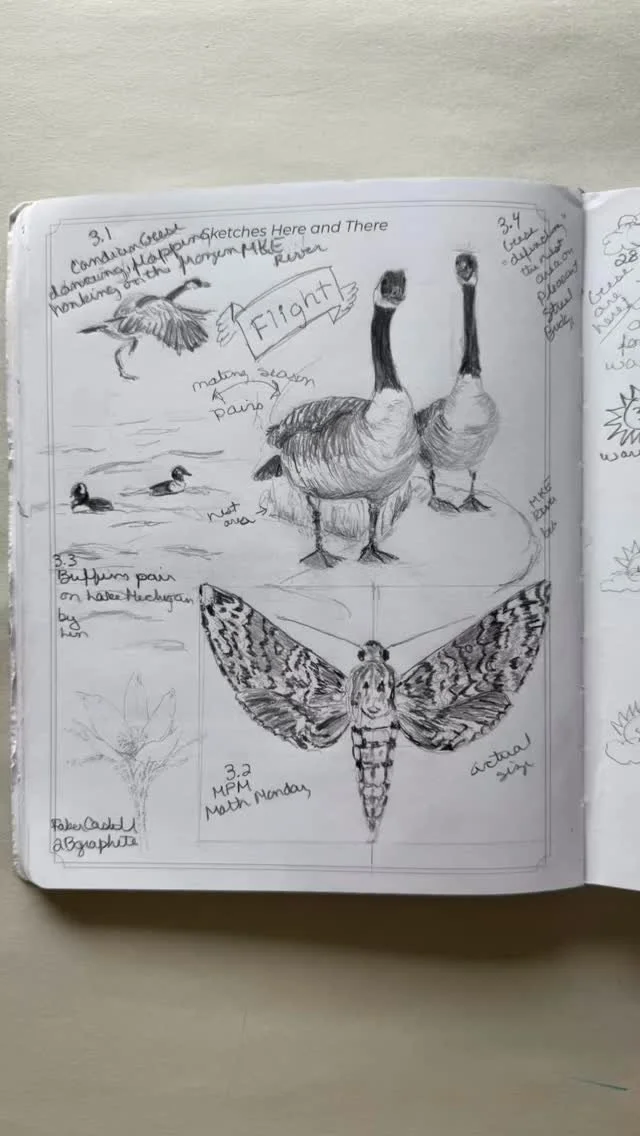 Sketches Here and There
3.1
Candian Geese
dancing, flapping
honking on the frozen MKE
River
Flight
mating season
pairs
nest
area
3.4
Geese
"defending"
the nest
area on
Pleasant
Street
MKE
3.3
Bufflins pair
on Lake Michigan
by
Lin
3.2
MPM
Math Monday
actual
size
Faber Castell
2B graphite
28
Geese
are
here!